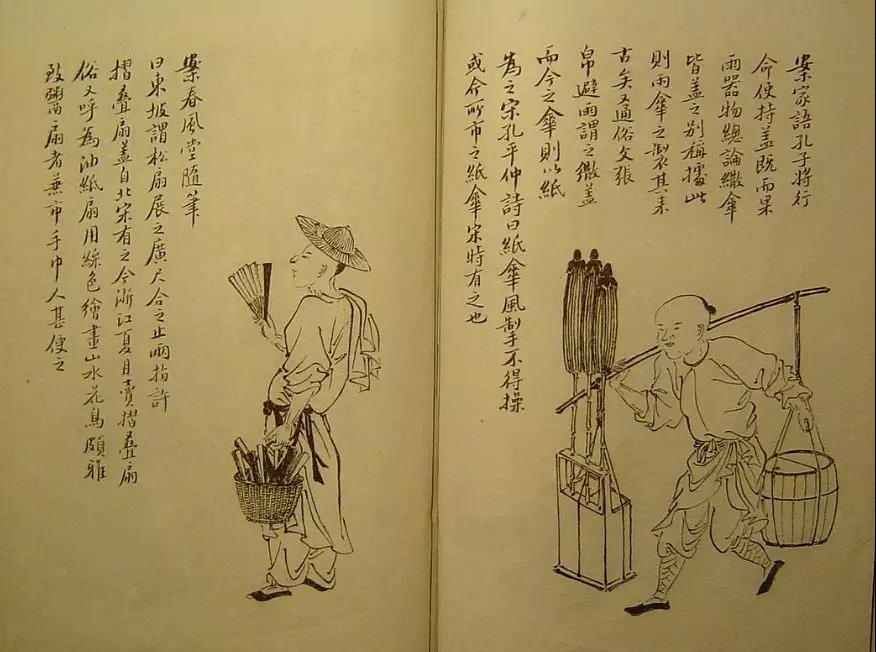 案家語孔子將行
命使持盖既而果
雨器物總論繖傘
皆盖之别稱據此
則雨傘之製其来
古矣又通俗文張
帛避雨謂之繖盖
而今之傘則以紙
為之宋孔平仲詩曰紙傘風掣手不得操
或今所市之紙傘宋時有之也
案春風堂隨筆
曰東坡謂松扇展之廣尺合之止兩指許
摺疊扇盖自北宋有之今浙江夏月賣摺疊扇
俗又呼為油紙扇用綵色繪畫山水花鳥頗雅
致鬻扇者兼市手巾人甚便之